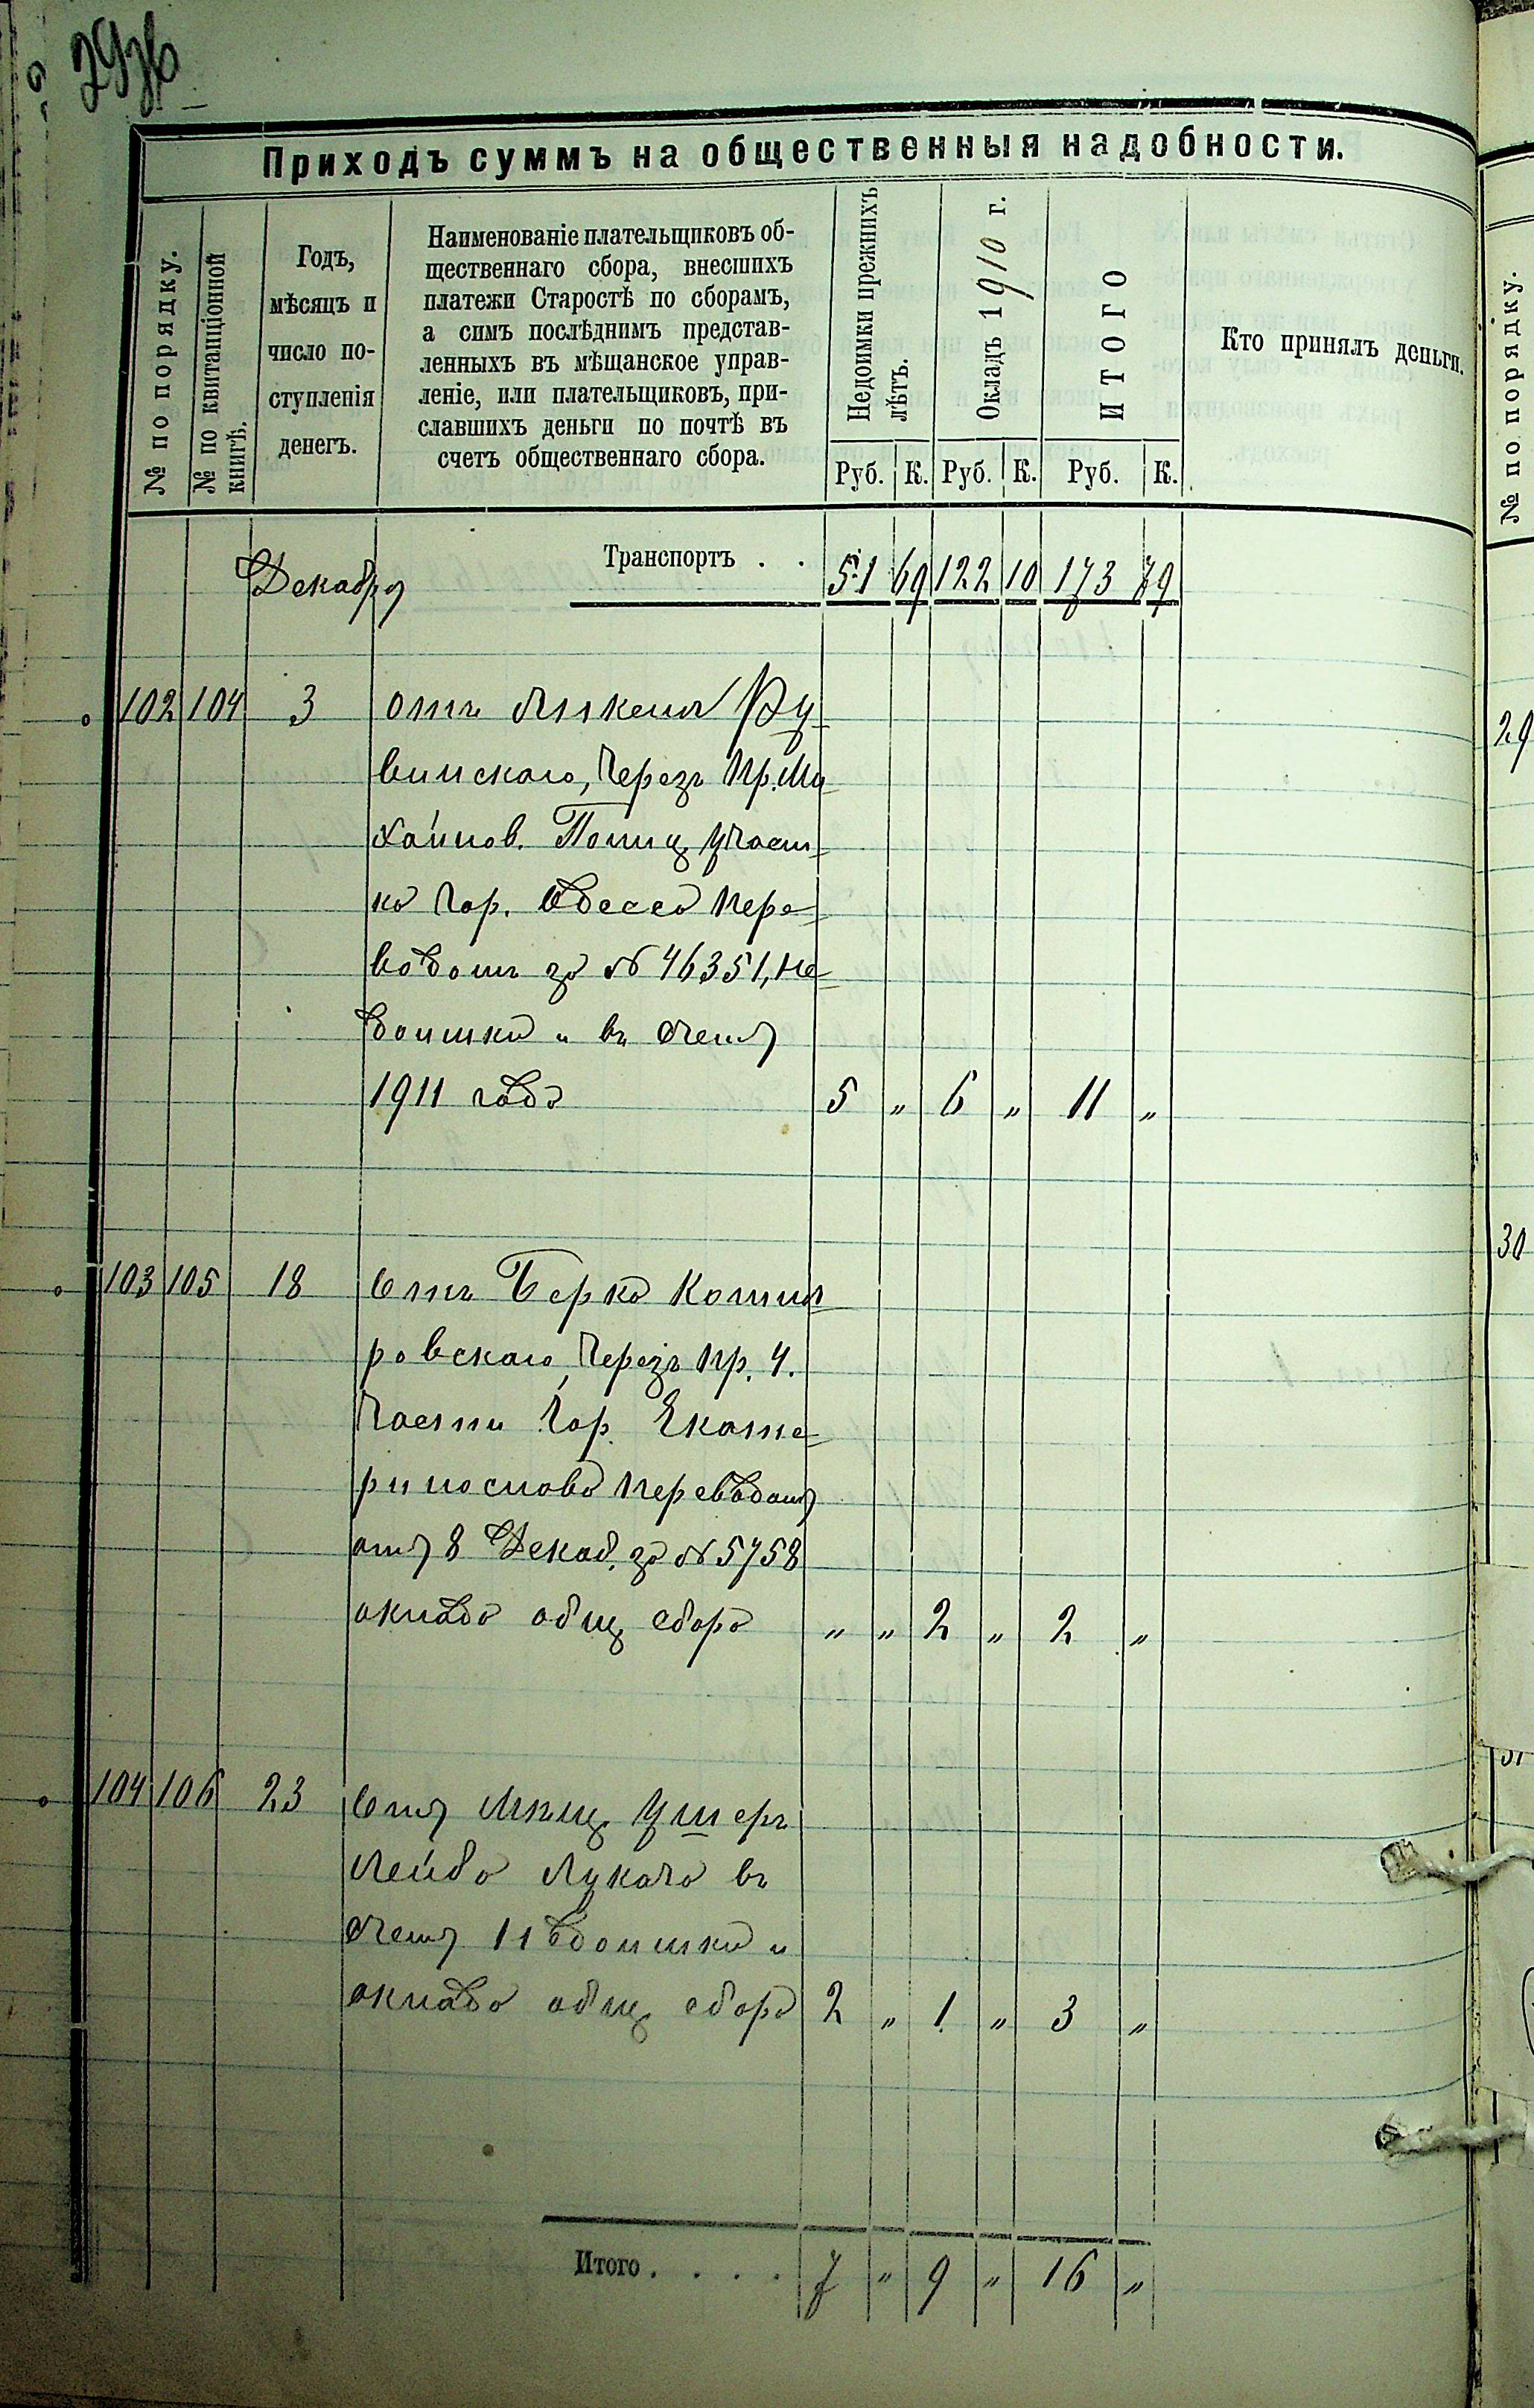 Приходъ суммъ на общественныя надобности.
№ по порядку.
№ по квитанціонной книгѣ.
Годъ,
мѣсяцъ и
число по-
ступленія
денегъ.
Наименованіе плательщиковъ об-
щественнаго сбора, внесшихъ
платежи Старостѣ по сборамъ,
а симъ послѣднимъ представ-
ленныхъ въ мѣщанское управ-
леніе, или плательщиковъ, при-
славшихъ деньги по почтѣ въ
счетъ общественнаго сбора.
Недоимки прежнихъ лѣтъ.
Окладъ 1910 г.
ИТОГО
Кто принялъ деньги.
Руб. К. Руб. К. Руб. К.
Декабря Транспортъ . . 51 69 122 10 173 79
102 104 3 отъ
винскаго, Через Пр. Ми
хайлов. Полиц. Участ-
ка Гор. Одесса Пере-
водомъ за № 46351, Не-
доимки и въ счетъ
1911 года 5 " 6 " 11 "
103 105 18 Отъ Берка Котля
ровскаго, Черезъ Пр. 4.
Части Гор. Екате-
ринослава Переводомъ
отъ 8 Декаб. за № 5758
оклада общ. сбора " " 2 " 2 "
104 106 23 Отъ Мѣщ. Ушеръ
Лейба Лукача въ
счетъ Недоимки и
оклада общ. сбора 2 " 1 " 3 "
Итого . . . . 7 " 9 " 16 "
№ по порядку.
29
30
31